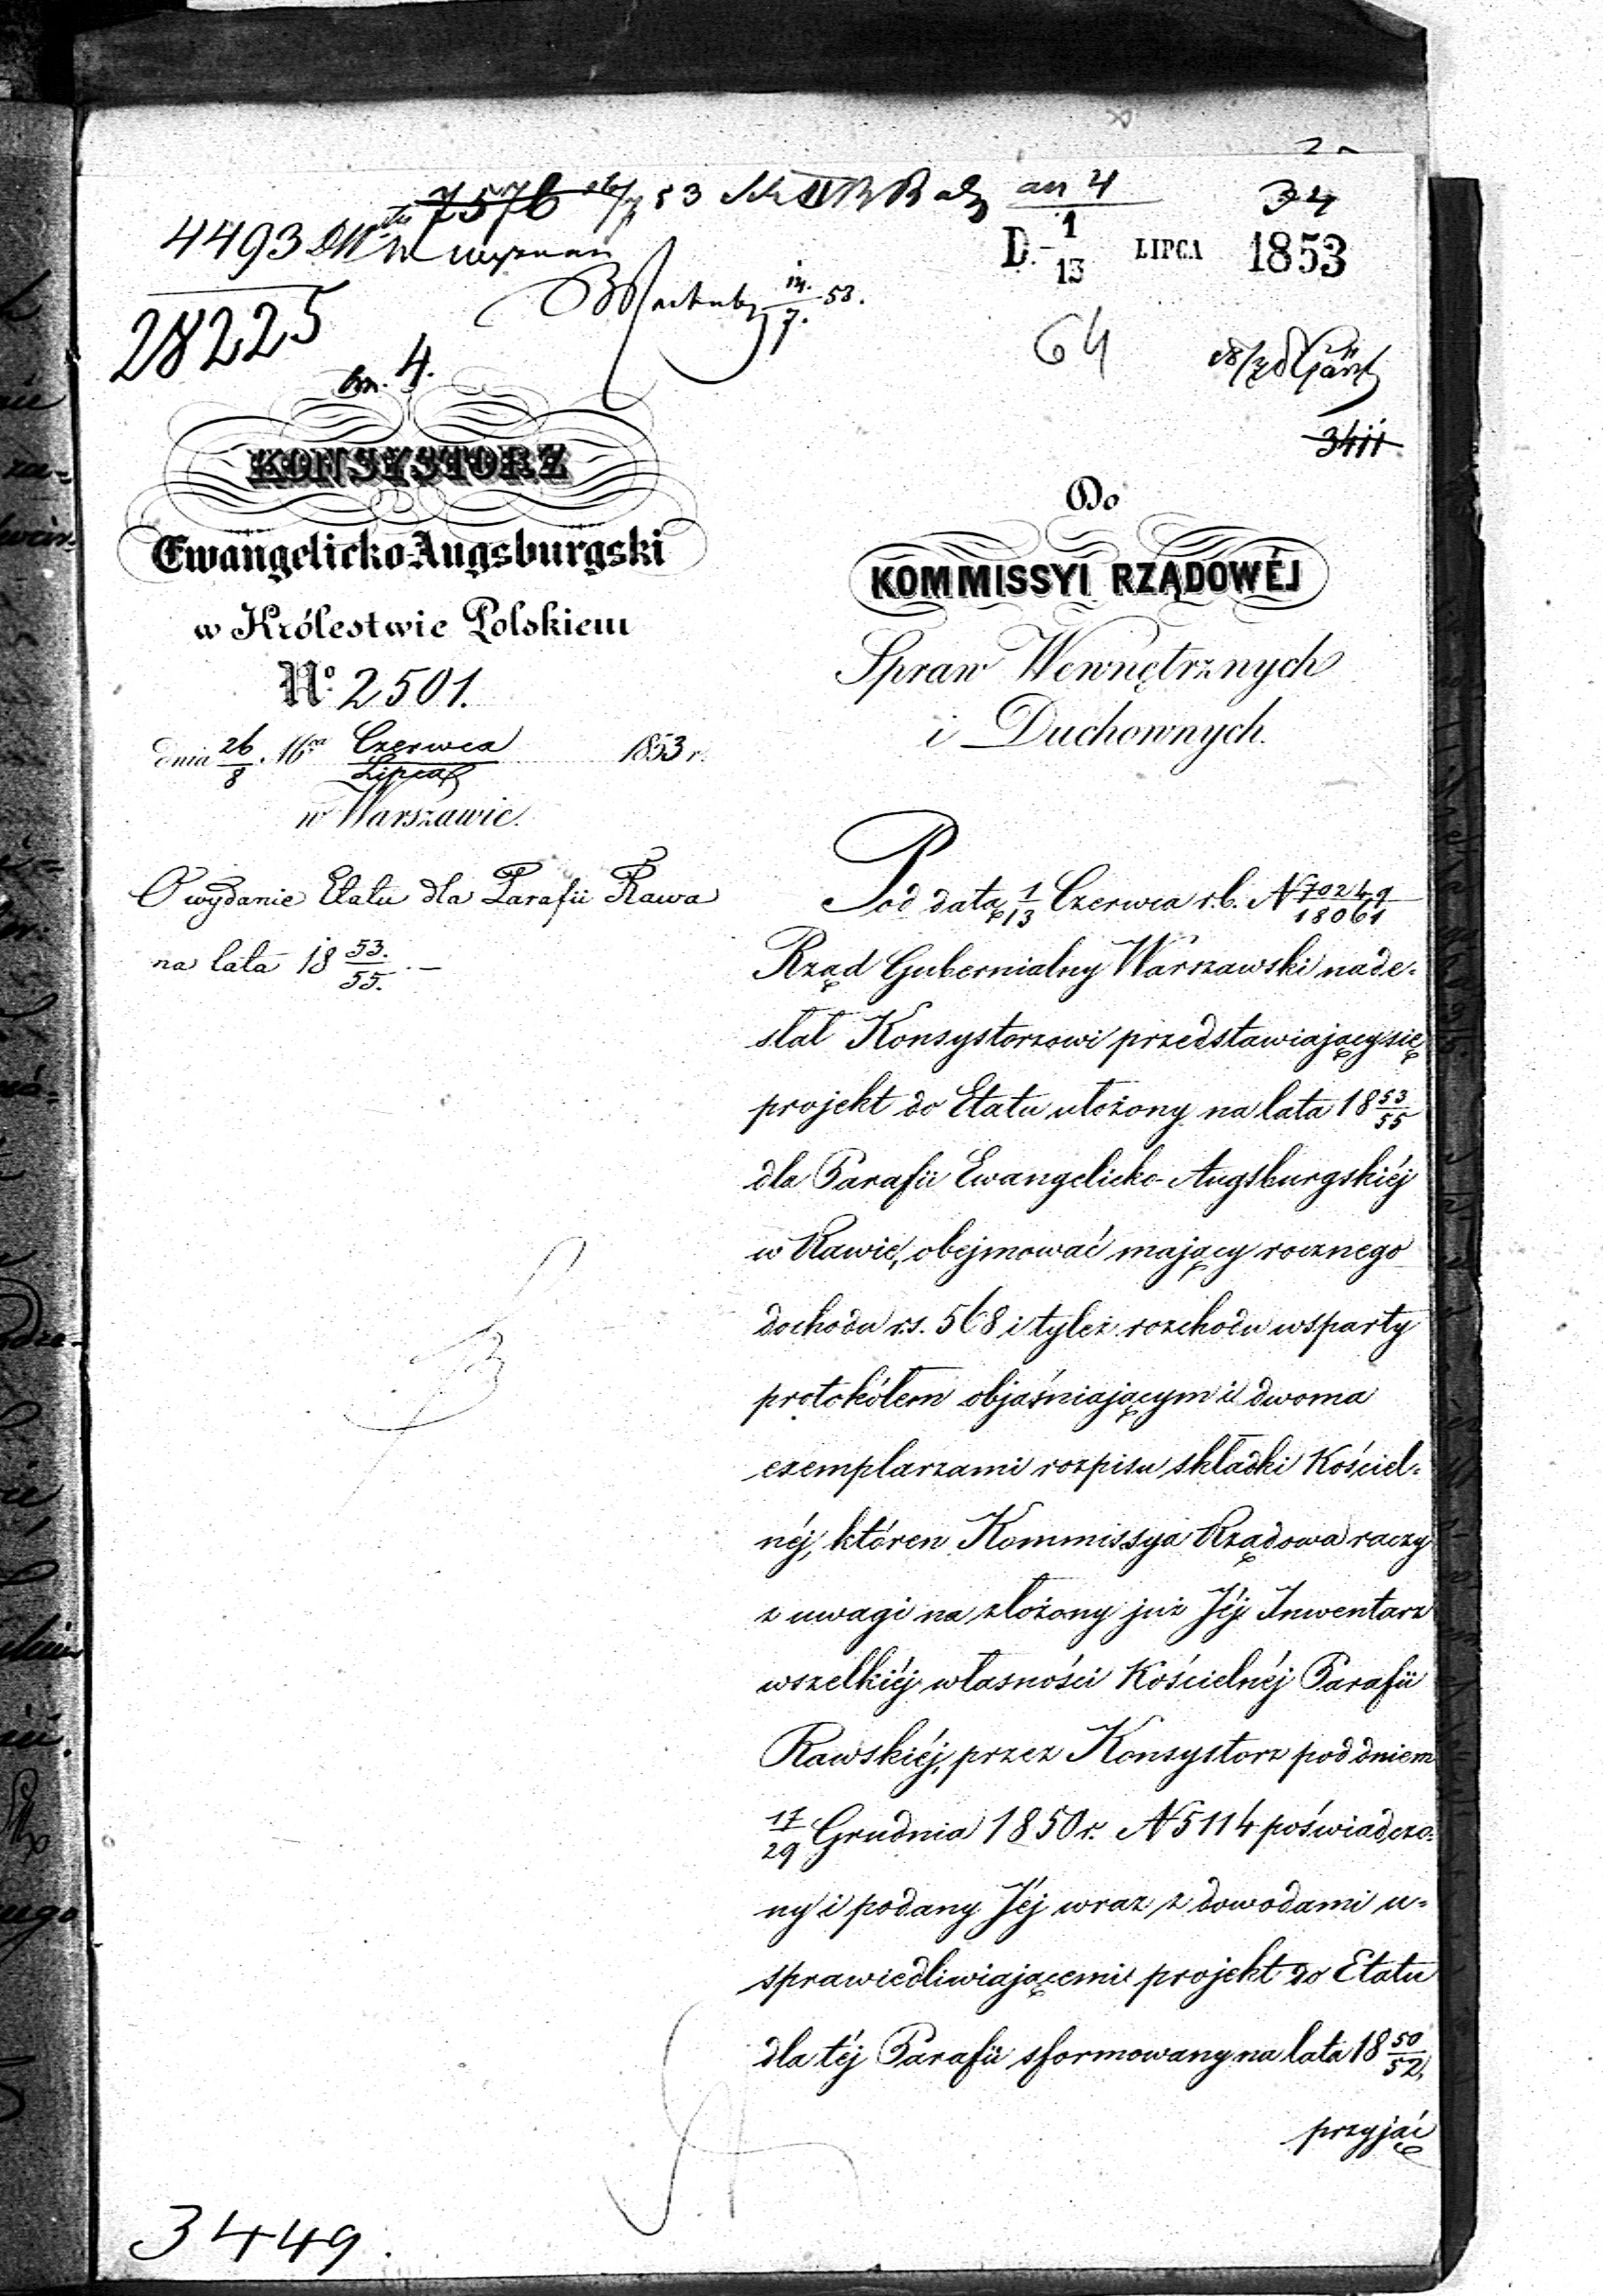 34
7576
4493
28225
an 4
D. 1/13 LIPCA 1853
14/7. 53.
64
an. 4.
3411
KONSYSTORZ
Ewangelicko-Augsburgski
w Królestwie Polskiem
No. 2501.
dnia 26/8 Czerwca/Lipca 1853 r.
w Warszawie.
O wydanie Etatu dla Parafii Rawa
na lata 18 53./55. —
Do
KOMMISSYI RZĄDOWÉJ
Spraw Wewnętrznych
i Duchownych.
Pod datą 1/13 Czerwca r.b. N 70249/18061
Rząd Gubernialny Warszawski nade-
słał Konsystorzowi przedstawiający się
projekt do Etatu ułożony na lata 18 53/55
dla Parafii Ewangelicko-Augsburgskiéj
w Rawie, obejmować mający rocznego
dochodu rs. 568 i tyleż rozchodu wsparty
protokółem objaśniającym i dwoma
exemplarzami rozpisu składki Kościel-
néj, któren Kommissya Rządowa raczy
z uwagi na złożony już Jéj Inwentarz
wszelkiéj własności Kościelnéj Parafii
Rawskiéj, przez Konsystorz pod dniem
17/29 Grudnia 1850 r. N 5114 poświadczo-
ny i podany Jéj wraz z dowodami u-
sprawiedliwiającemi projekt do Etatu
dla téj Parafii sformowany na lata 18 50/52,
przyjąć
3449.